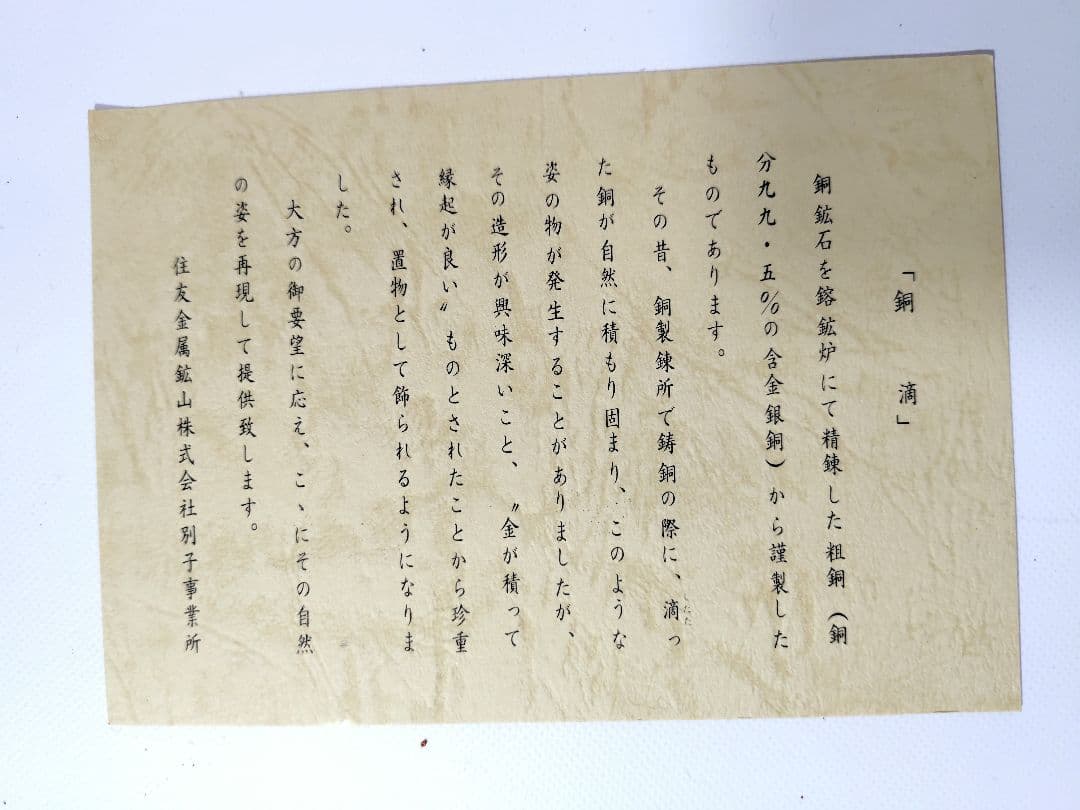 「銅　滴」
銅鉱石を鎔鉱炉にて精錬した粗銅（銅
分九九・五%の含金銀銅）から謹製した
ものであります。
その昔、銅製錬所で鋳銅の際に、滴っ
た銅が自然に積もり固まり、このような
姿の物が発生することがありましたが、
その造形が興味深いこと、〝金が積って
縁起が良い〟ものとされたことから珍重
され、置物として飾られるようになりま
した。
大方の御要望に応え、こゝにその自然
の姿を再現して提供致します。
住友金属鉱山株式会社別子事業所